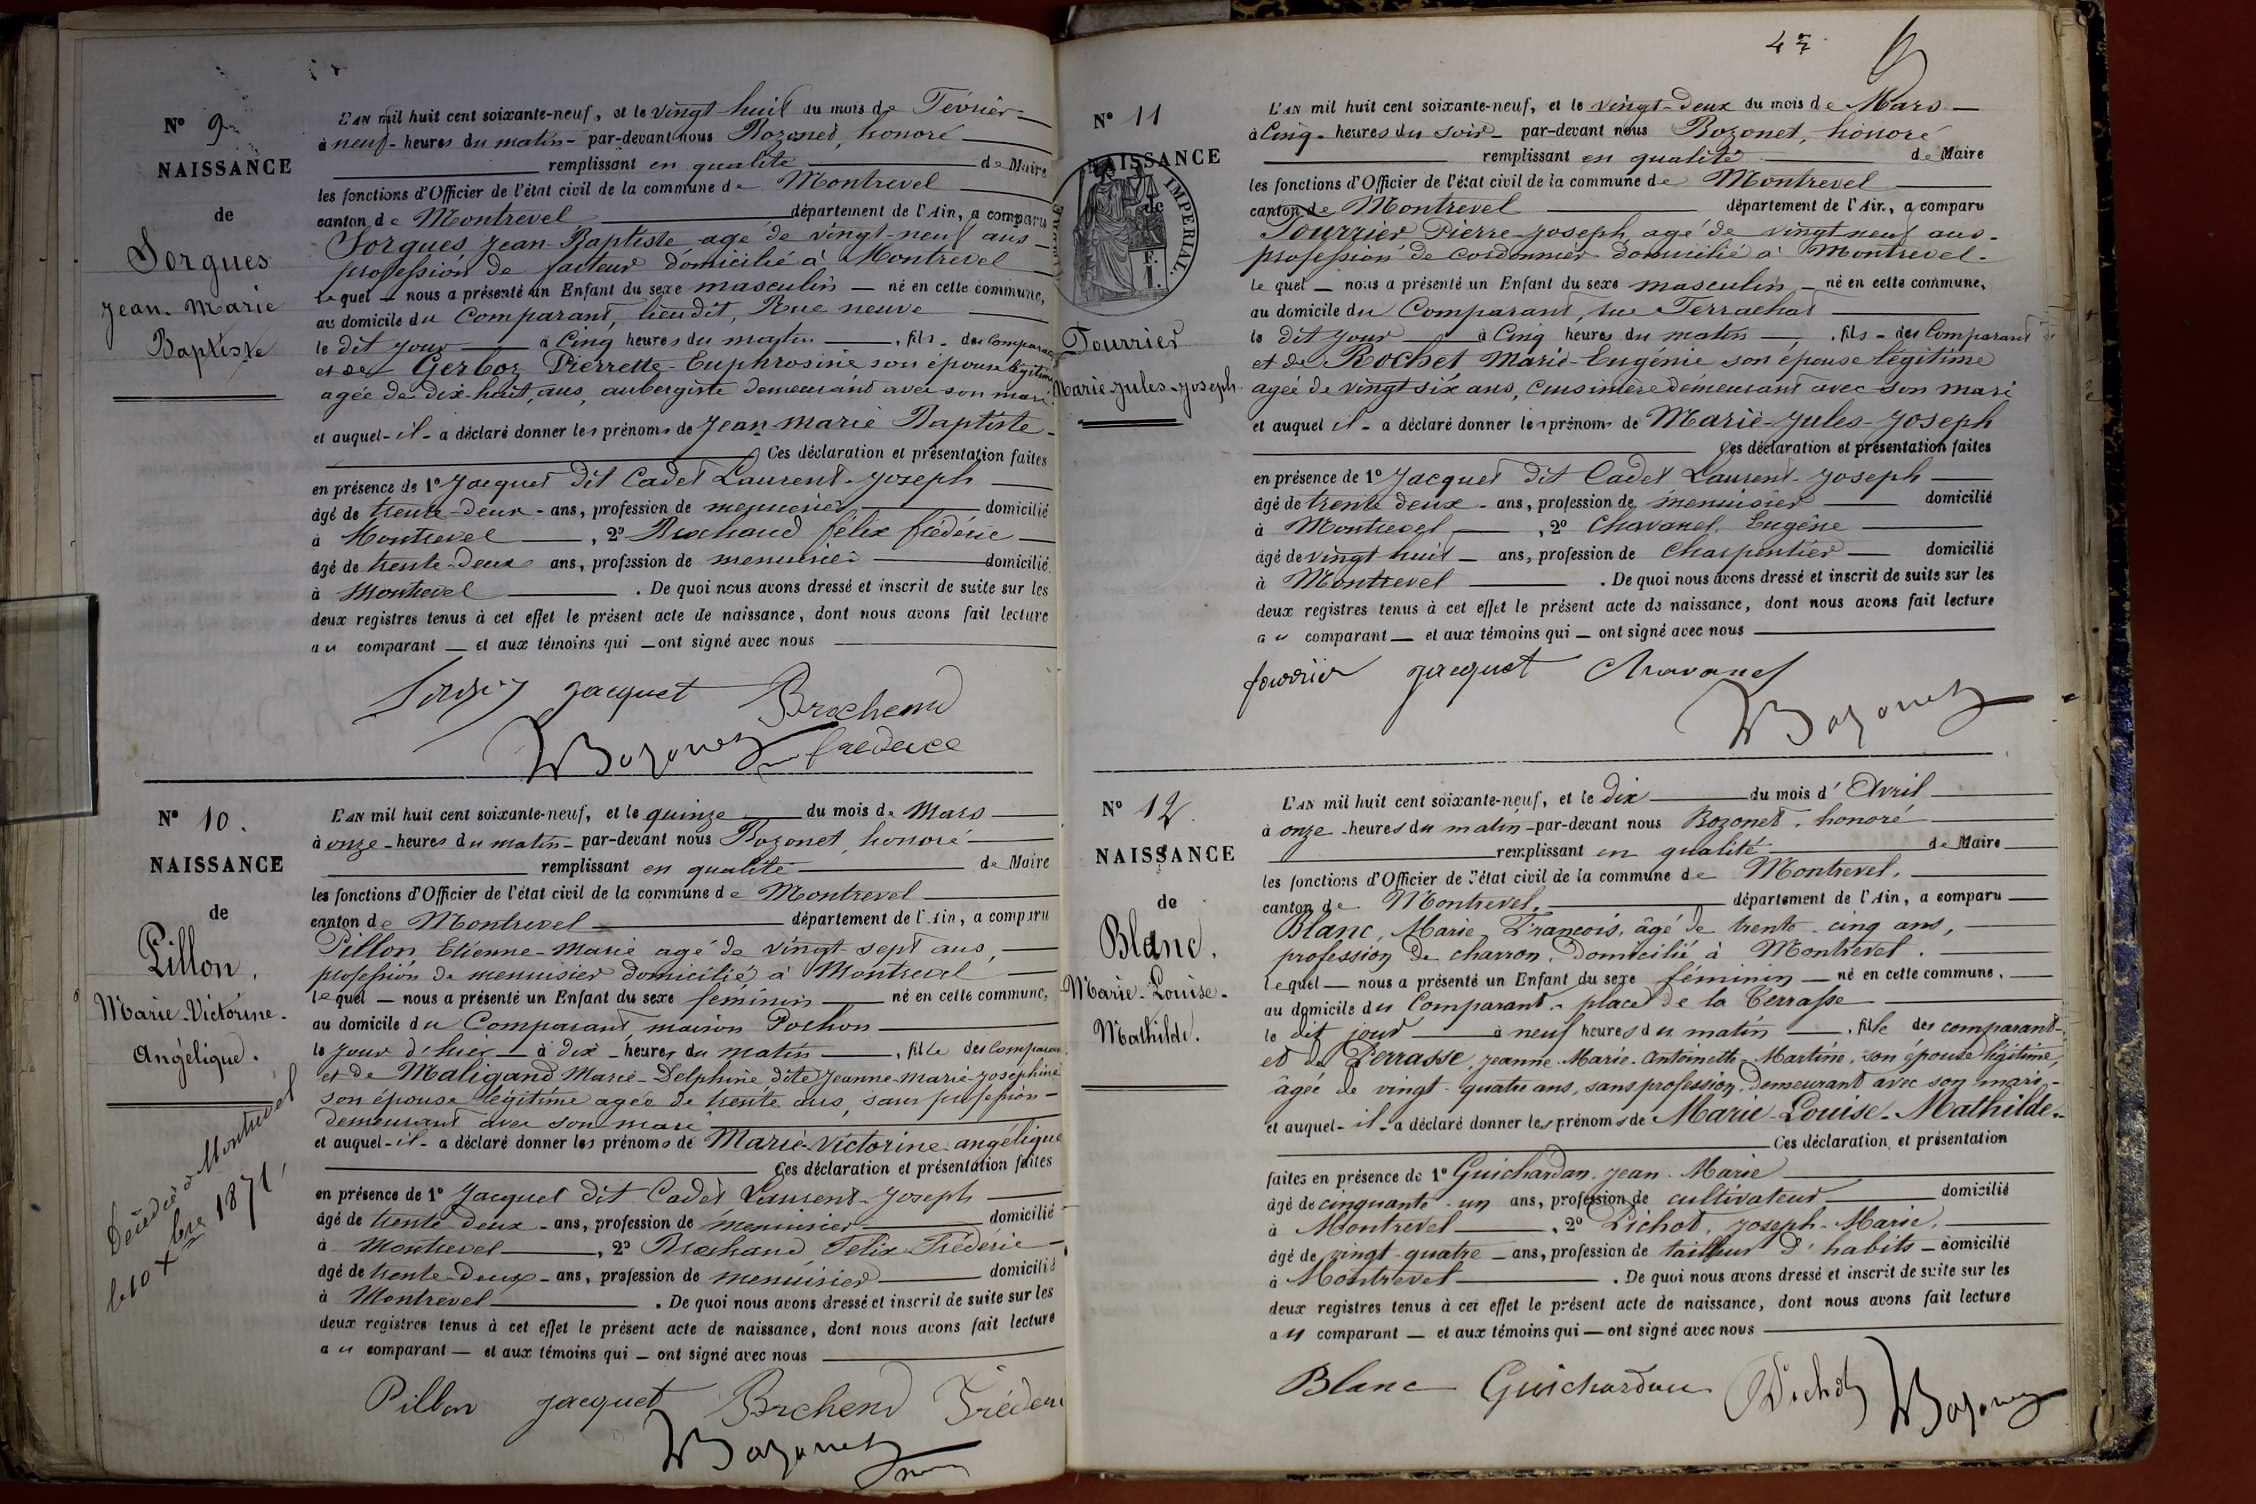 Nº 9
NAISSANCE
de
Sorgues
Jean-Marie
Baptiste
L'AN mil huit cent soixante-neuf, et le vingt-huit du mois de Février
à neuf heures du matin par-devant nous Bozonet, honoré
remplissant en qualité de Maire
les fonctions d'Officier de l'état civil de la commune de Montrevel
canton de Montrevel département de l'Ain, a comparu
Sorgues Jean-Baptiste agé de vingt-neuf ans
profession de facteur domicilié à Montrevel
lequel nous a présenté un Enfant du sexe masculin né en cette commune,
au domicile du Comparant, lieu dit, Rue neuve
le dit jour à Cinq heures du matin, fils des Comparant
et de Gerboz Pierrette-Euphrosine son épouse légitime
agée de dix-huit ans, aubergiste demeurant avec son mari
et auquel il a déclaré donner les prénoms de Jean-Marie Baptiste
Ces déclaration et présentation faites
en présence de 1º Jacquet dit Cadet Laurent-Joseph
âgé de trente-deux ans, profession de menuisier domicilié
à Montrevel, 2º Brochand félix frédéric
âgé de trente-deux ans, profession de menuisier domicilié
à Montrevel. De quoi nous avons dressé et inscrit de suite sur les
deux registres tenus à cet effet le présent acte de naissance, dont nous avons fait lecture
au comparant et aux témoins qui ont signé avec nous
Jacquet
Bozonet
Nº 10.
NAISSANCE
de
Pillon.
Marie-Victorine-
Angélique.
Décédée à Montrevel
le 10 Xbre 1871
L'AN mil huit cent soixante-neuf, et le quinze du mois de Mars
à onze heures du matin par-devant nous Bozonet, honoré
remplissant en qualité de Maire
les fonctions d'Officier de l'état civil de la commune de Montrevel
canton de Montrevel département de l'Ain, a comparu
Pillon Etienne-Marie agé de vingt-sept ans,
profession de menuisier domicilié à Montrevel
lequel nous a présenté un Enfant du sexe féminin né en cette commune,
au domicile du Comparant, maison Pochon
le jour d'hier à dix heures du matin, fille des Comparant
et de Maligand Marie-Delphine dite Jeanne-Marie-Joséphine
son épouse légitime agée de trente ans, sans profession
demeurant avec son mari
et auquel il a déclaré donner les prénoms de Marie-Victorine angélique
Ces déclaration et présentation faites
en présence de 1º Jacquet dit Cadet Laurent-Joseph
âgé de trente-deux ans, profession de menuisier domicilié
à Montrevel, 2º Brochand Félix-Frédéric
âgé de trente-deux ans, profession de menuisier domicilié
à Montrevel. De quoi nous avons dressé et inscrit de suite sur les
deux registres tenus à cet effet le présent acte de naissance, dont nous avons fait lecture
au comparant et aux témoins qui ont signé avec nous
Pillon Jacquet
Bozonet
Nº 11
NAISSANCE
de
IMPERIAL.
Fourrier
Marie-Jules-Joseph
L'AN mil huit cent soixante-neuf, et le vingt-deux du mois de Mars
à Cinq heures du soir par-devant nous Bozonet, honoré
remplissant en qualité de Maire
les fonctions d'Officier de l'état civil de la commune de Montrevel
canton de Montrevel département de l'Ain, a comparu
Fourrier Pierre-Joseph agé de vingt neuf ans
profession de cordonnier domicilié à Montrevel
lequel nous a présenté un Enfant du sexe masculin né en cette commune,
au domicile du Comparant, rue
le dit jour à Cinq heures du matin, fils des Comparant
et de Rochet Marie-Eugénie son épouse légitime
agée de vingt six ans, cuisinière demeurant avec son mari
et auquel il a déclaré donner les prénoms de Marie-Jules-Joseph
Ces déclaration et présentation faites
en présence de 1º Jacquet dit Cadet Laurent-Joseph
âgé de trente deux ans, profession de menuisier domicilié
à Montrevel, 2º Chavanel Eugène
âgé de vingt huit ans, profession de Charpentier domicilié
à Montrevel. De quoi nous avons dressé et inscrit de suite sur les
deux registres tenus à cet effet le présent acte de naissance, dont nous avons fait lecture
au comparant et aux témoins qui ont signé avec nous
fourrier Jacquet Chavanel
Bozonet
Nº 12
NAISSANCE
de
Blanc.
Marie-Louise-
Mathilde.
L'AN mil huit cent soixante-neuf, et le dix du mois d'Avril
à onze heures du matin par-devant nous Bozonet, honoré
remplissant en qualité de Maire
les fonctions d'Officier de l'état civil de la commune de Montrevel.
canton de Montrevel. département de l'Ain, a comparu
Blanc, Marie François, âgé de trente-cinq ans,
profession de charron, domicilié à Montrevel.
lequel nous a présenté un Enfant du sexe féminin né en cette commune,
au domicile du Comparant, place de la Terrasse
le dit jour à neuf heures du matin, fille des comparant
et de Perrasse, Jeanne-Marie-Antoinette-Martine, son épouse légitime,
âgée de vingt-quatre ans, sans profession, demeurant avec son mari
et auquel il a déclaré donner les prénoms de Marie-Louise-Mathilde.
Ces déclaration et présentation
faites en présence de 1º Guichardan Jean-Marie
âgé de cinquante-un ans, profession de cultivateur domicilié
à Montrevel, 2º Pichod, Joseph-Marie,
âgé de vingt-quatre ans, profession de tailleur d'habits domicilié
à Montrevel. De quoi nous avons dressé et inscrit de suite sur les
deux registres tenus à cet effet le présent acte de naissance, dont nous avons fait lecture
au comparant et aux témoins qui ont signé avec nous
Blanc Guichardan Pichod Bozonet